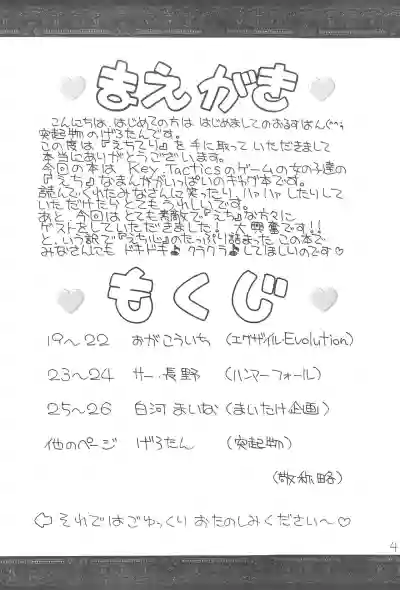 まえがき
こんにちは、はじめての方は はじめましてのおるすばん(^^;
突起物のげろたんです。
この度は『えちてり』を手に取って いただきまして
本当にありがとうございます。
今回の本は Key、Tacticsのゲームの女の子達の
『えち』なまんががいっぱいのギャグ本です。
読んでくれたみなさんに笑ったり、ハァハァしたりして
いただけたらとてもうれしいです。
あと、今回はとても素敵で『えち』な方々に
ゲストをしていただきました! 大興奮です!!
と、いう訳で『えちじ』のたっぷり詰まった この本で
みなさんにも ドキドキ♪クラクラ♪してほしいのです♡
もくじ
19〜22 おがこういち (エグザイルEvolution)
23〜24 サー・長野 (ハンマーフォール)
25〜26 白河まいな (まいたけ企画)
他のページ げろたん (突起物)
(敬称略)
⇦ それではごゆっくり おたのしみください〜♡
4